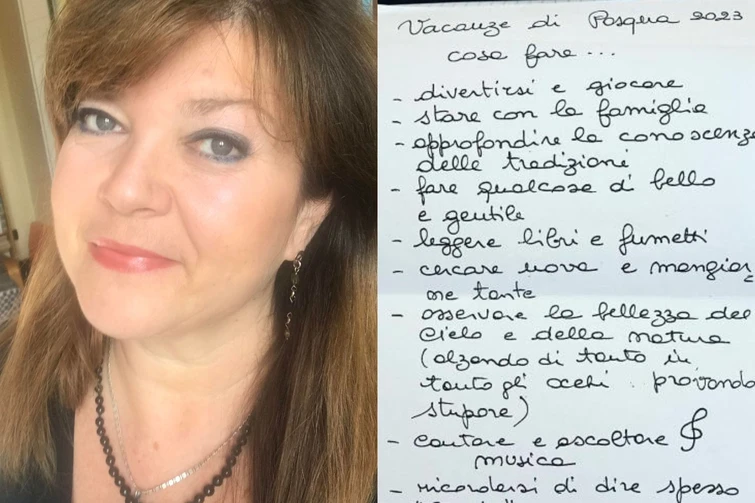 Vacanze di Pasqua 2023
cose fare...
- divertirsi e giocare
- stare con la famiglia
- approfondire la conoscenza
delle tradizioni
- fare qualcosa di bello
e gentile
- leggere libri e fumetti
- cercare uova e mangiar
ne tante
- osservare la bellezza del
cielo e della natura
(alzando di tanto in
tanto gli occhi provando
stupore)
- cantare e ascoltare
musica
- ricordarsi di dire spesso